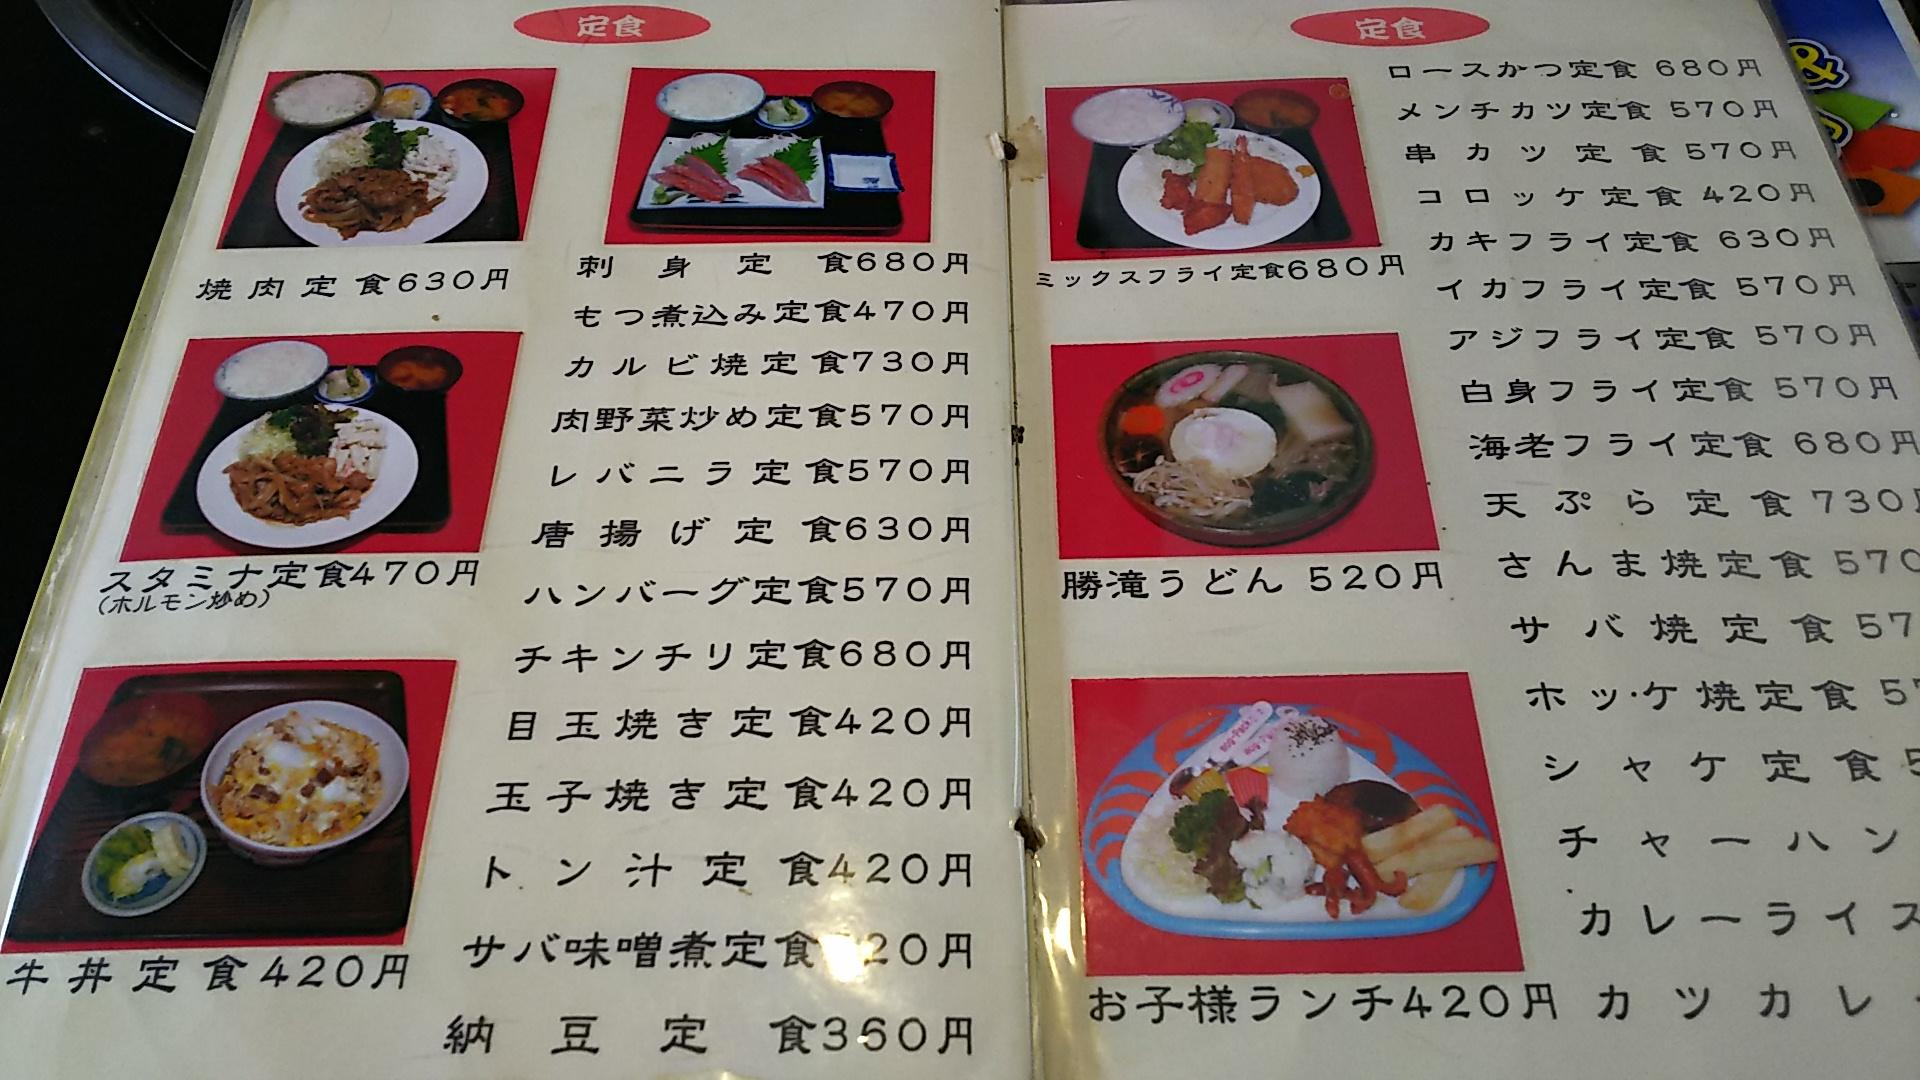 定食
焼肉定食630円
スタミナ定食470円
(ホルモン炒め)
牛丼定食420円
刺身定食680円
もつ煮込み定食470円
カルビ焼定食730円
肉野菜炒め定食570円
レバニラ定食570円
唐揚げ定食630円
ハンバーグ定食570円
チキンチリ定食680円
目玉焼き定食420円
玉子焼き定食420円
トン汁定食420円
サバ味噌煮定食 20円
納豆定食360円
定食
ミックスフライ定食680円
勝滝うどん 520円
お子様ランチ420円
ロースかつ定食 680円
メンチカツ定食 570円
串カツ定食 570円
コロッケ定食 420円
カキフライ定食 630円
イカフライ定食 570円
アジフライ定食 570円
白身フライ定食 570円
海老フライ定食 680円
天ぷら定食 730
さんま焼定食 570
サバ焼定食 57
ホッケ焼定食 5
シャケ定食
チャーハン
カレーライス
カツカレー
&